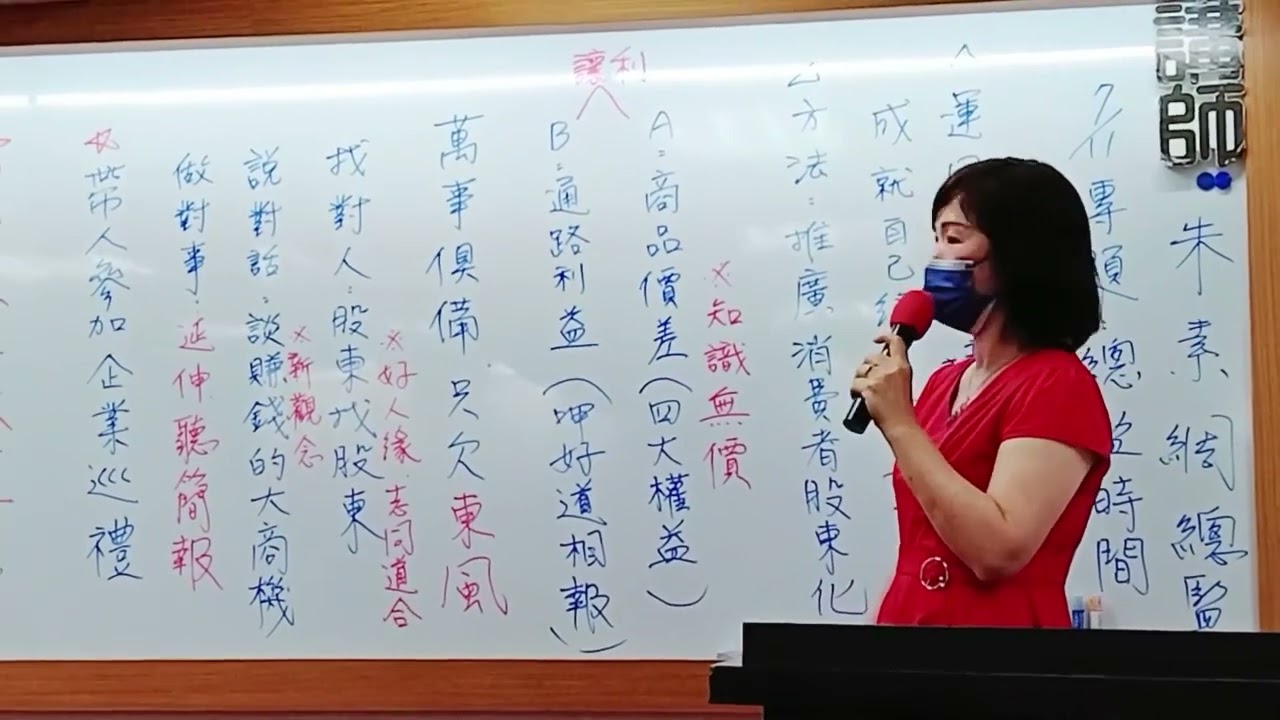 講師
朱素綢總監
7/11專題：總 時間
運
成就自己
方法：推廣消費者股東化
※知識無價
讓利
A：商品價差（四大權益）
B：通路利益（呷好道相報）
萬事俱備只欠東風
※好人緣.志同道合
找對人：股東找股東
※新觀念
說對話：談賺錢的大商機
做對事：延伸聽簡報
帶人參加企業巡禮